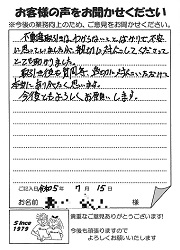 お客様の声をお聞かせください
※今後の業務向上のため、ご意見をお聞かせください
不動産取引は、わからないことばかりで不安に
思っていましたが、親切に対応してくださって
とても助かりました。
取引を後も質問等、適切に対応いただけて
本当にありがたく思います。
今後ともよろしくお願いします。
ご記入日 令和5年 7月 15日
お名前
Since
1979
貴重なご意見ありがとうございます!
今後も頑張りますので
よろしくお願いいたします